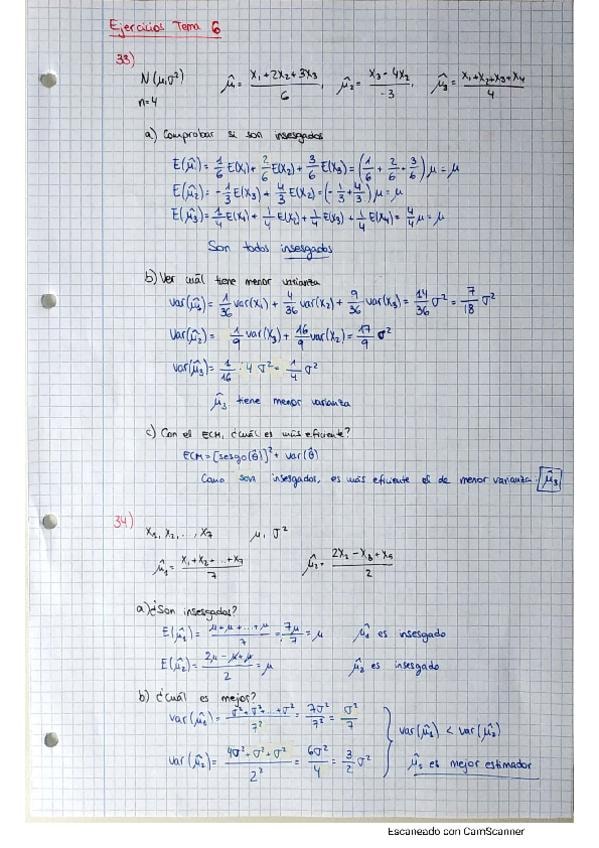 Ejercicios Tema 6
33)
N(μ,σ²) μ̂₁ = (x₁+2x₂+3x₃)/6, μ̂₂ = (x₃-4x₂)/-3, μ̂₃ = (x₁+x₂+x₃+x₄)/4
n=4
a) Comprobar si son insesgados
E(μ̂₁) = 1/6 E(x₁) + 2/6 E(x₂) + 3/6 E(x₃) = (1/6 + 2/6 + 3/6) μ = μ
E(μ̂₂) = -1/3 E(x₃) + 4/3 E(x₂) = (-1/3 + 4/3) μ = μ
E(μ̂₃) = 1/4 E(x₁) + 1/4 E(x₂) + 1/4 E(x₃) + 1/4 E(x₄) = 4/4 μ = μ
Son todos insesgados
b) Ver cuál tiene menor varianza
var(μ̂₁) = 1/36 var(x₁) + 4/36 var(x₂) + 9/36 var(x₃) = 14/36 σ² = 7/18 σ²
var(μ̂₂) = 1/9 var(x₃) + 16/9 var(x₂) = 17/9 σ²
var(μ̂₃) = 1/16 · 4σ² = 1/4 σ²
μ̂₃ tiene menor varianza
c) Con el ECM, ¿cuál es más eficiente?
ECM = [sesgo(θ̂)]² + var(θ̂)
Como son insesgados, es más eficiente el de menor varianza: μ̂₃
34)
x₁, x₂, ..., x₇ μ, σ²
μ̂₁ = (x₁+x₂+...+x₇)/7 μ̂₂ = (2x₂-x₃+x₅)/2
a) ¿Son insesgados?
E(μ̂₁) = (μ+μ+...+μ)/7 = 7μ/7 = μ μ̂₁ es insesgado
E(μ̂₂) = (2μ-μ+μ)/2 = μ μ̂₂ es insesgado
b) ¿Cuál es mejor?
var(μ̂₁) = (σ²+σ²+...+σ²)/7² = 7σ²/7² = σ²/7
var(μ̂₁) < var(μ̂₂)
var(μ̂₂) = (4σ²+σ²+σ²)/2² = 6σ²/4 = 3/2 σ²
μ̂₁ es mejor estimador
Escaneado con CamScanner